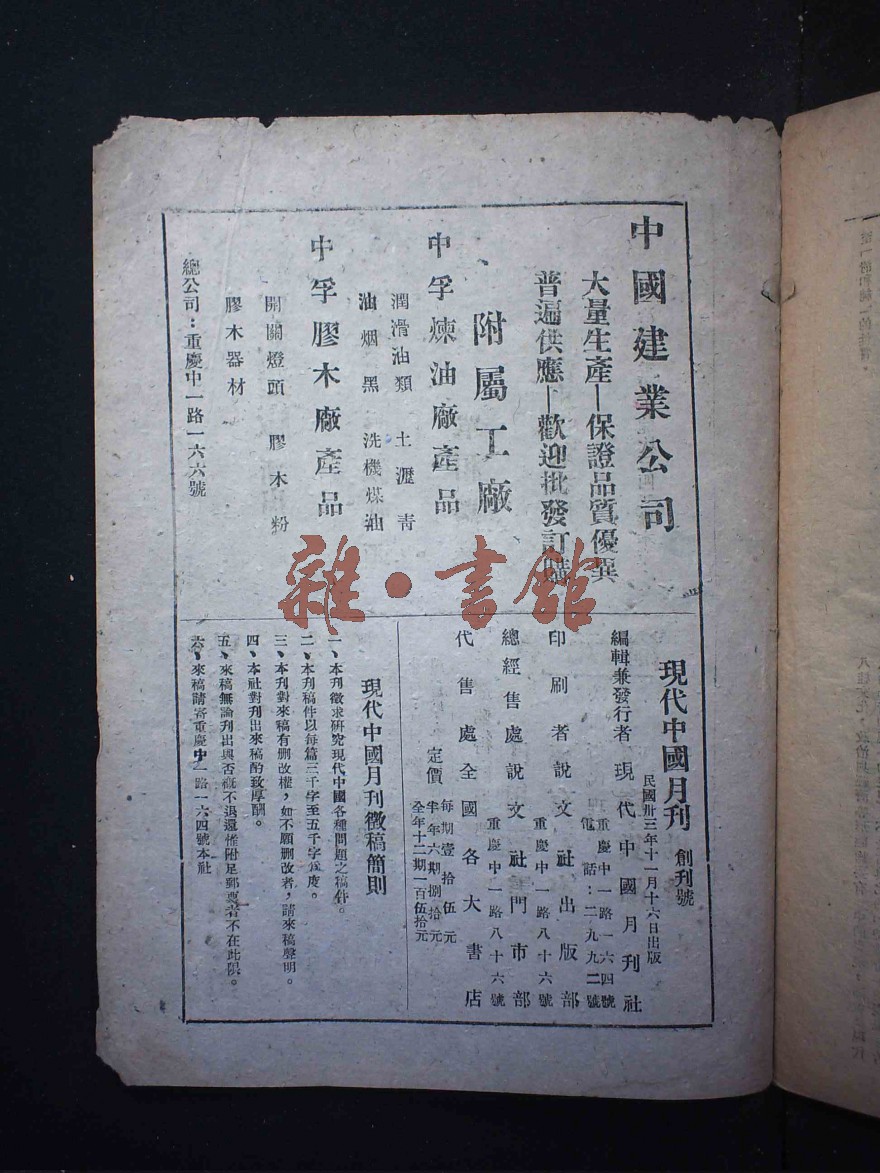 中國建業公司
大量生產—保證品質優異
普遍供應—歡迎批發訂購
附屬工廠
中孚煉油廠產品
潤滑油類 土瀝青
油烟黑 洗機煤油
中孚膠木廠產品
開關燈頭 膠木粉
膠木器材
總公司：重慶中一路一六六號
現代中國月刊 創刊號
民國卅三年十一月十六日出版
編輯兼發行者 現代中國月刊社
重慶中一路一六四號
電話：二九九二號
印刷者 說文社出版部
重慶中一路八十六號
總經售處 說文社門市部
重慶中一路八十六號
代售處 全國各大書店
定價
每期壹拾伍元
半年六期捌拾元
全年十二期一百伍拾元
現代中國月刊徵稿簡則
一、本刊徵求研究現代中國各種問題之稿件。
二、本刊稿件以每篇三千字至五千字為度。
三、本刊對來稿有刪改權，如不願刪改者，請來稿聲明。
四、本社對刊出來稿酌致厚酬。
五、來稿無論刊出與否概不退還惟附足郵票者不在此限。
六、來稿請寄重慶中一路一六四號本社
雜·書館